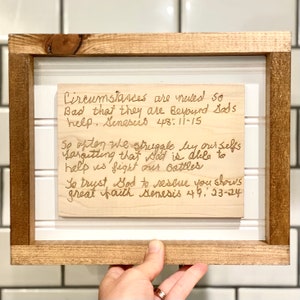 Circumstances are never so
Bad that they are Beyond God's
help. Genesis 48:11-15
So often we struggle by ourselfs
forgetting that God is able to
help us fight our Battles
To trust God to rescue you shows
great faith Genesis 49:23-24